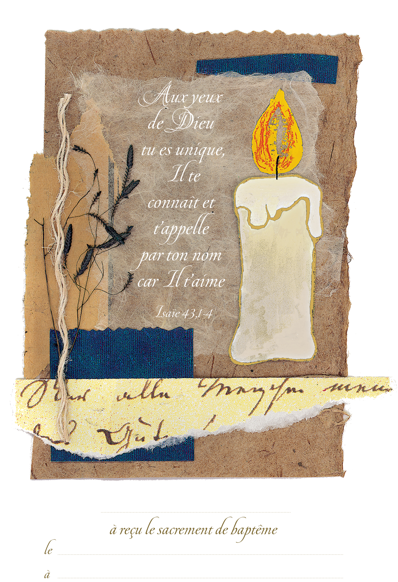 Aux yeux
de Dieu
tu es unique,
Il te
connait et
t'appelle
par ton nom
car Il t'aime
Isaïe 43,1-4
à reçu le sacrement de baptême
le
à